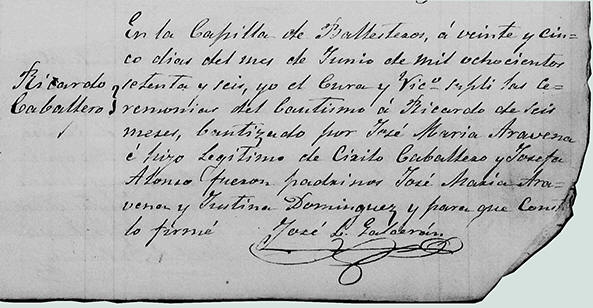 En la Capilla de Ballesteros, á veinte y cin-
co dias del mes de Junio de mil ochocientos
setenta y seis, yo el Cura y Vico. suplí las ce-
Ricardo
Caballero
remonias del bautismo á Ricardo de seis
meses, bautizado por José Maria Aravena
é hijo legítimo de Cirilo Caballero y Josefa
Alonso fueron padrinos José Maria Ara-
vena y Justina Dominguez y para que const
lo firmé José L. Galderán